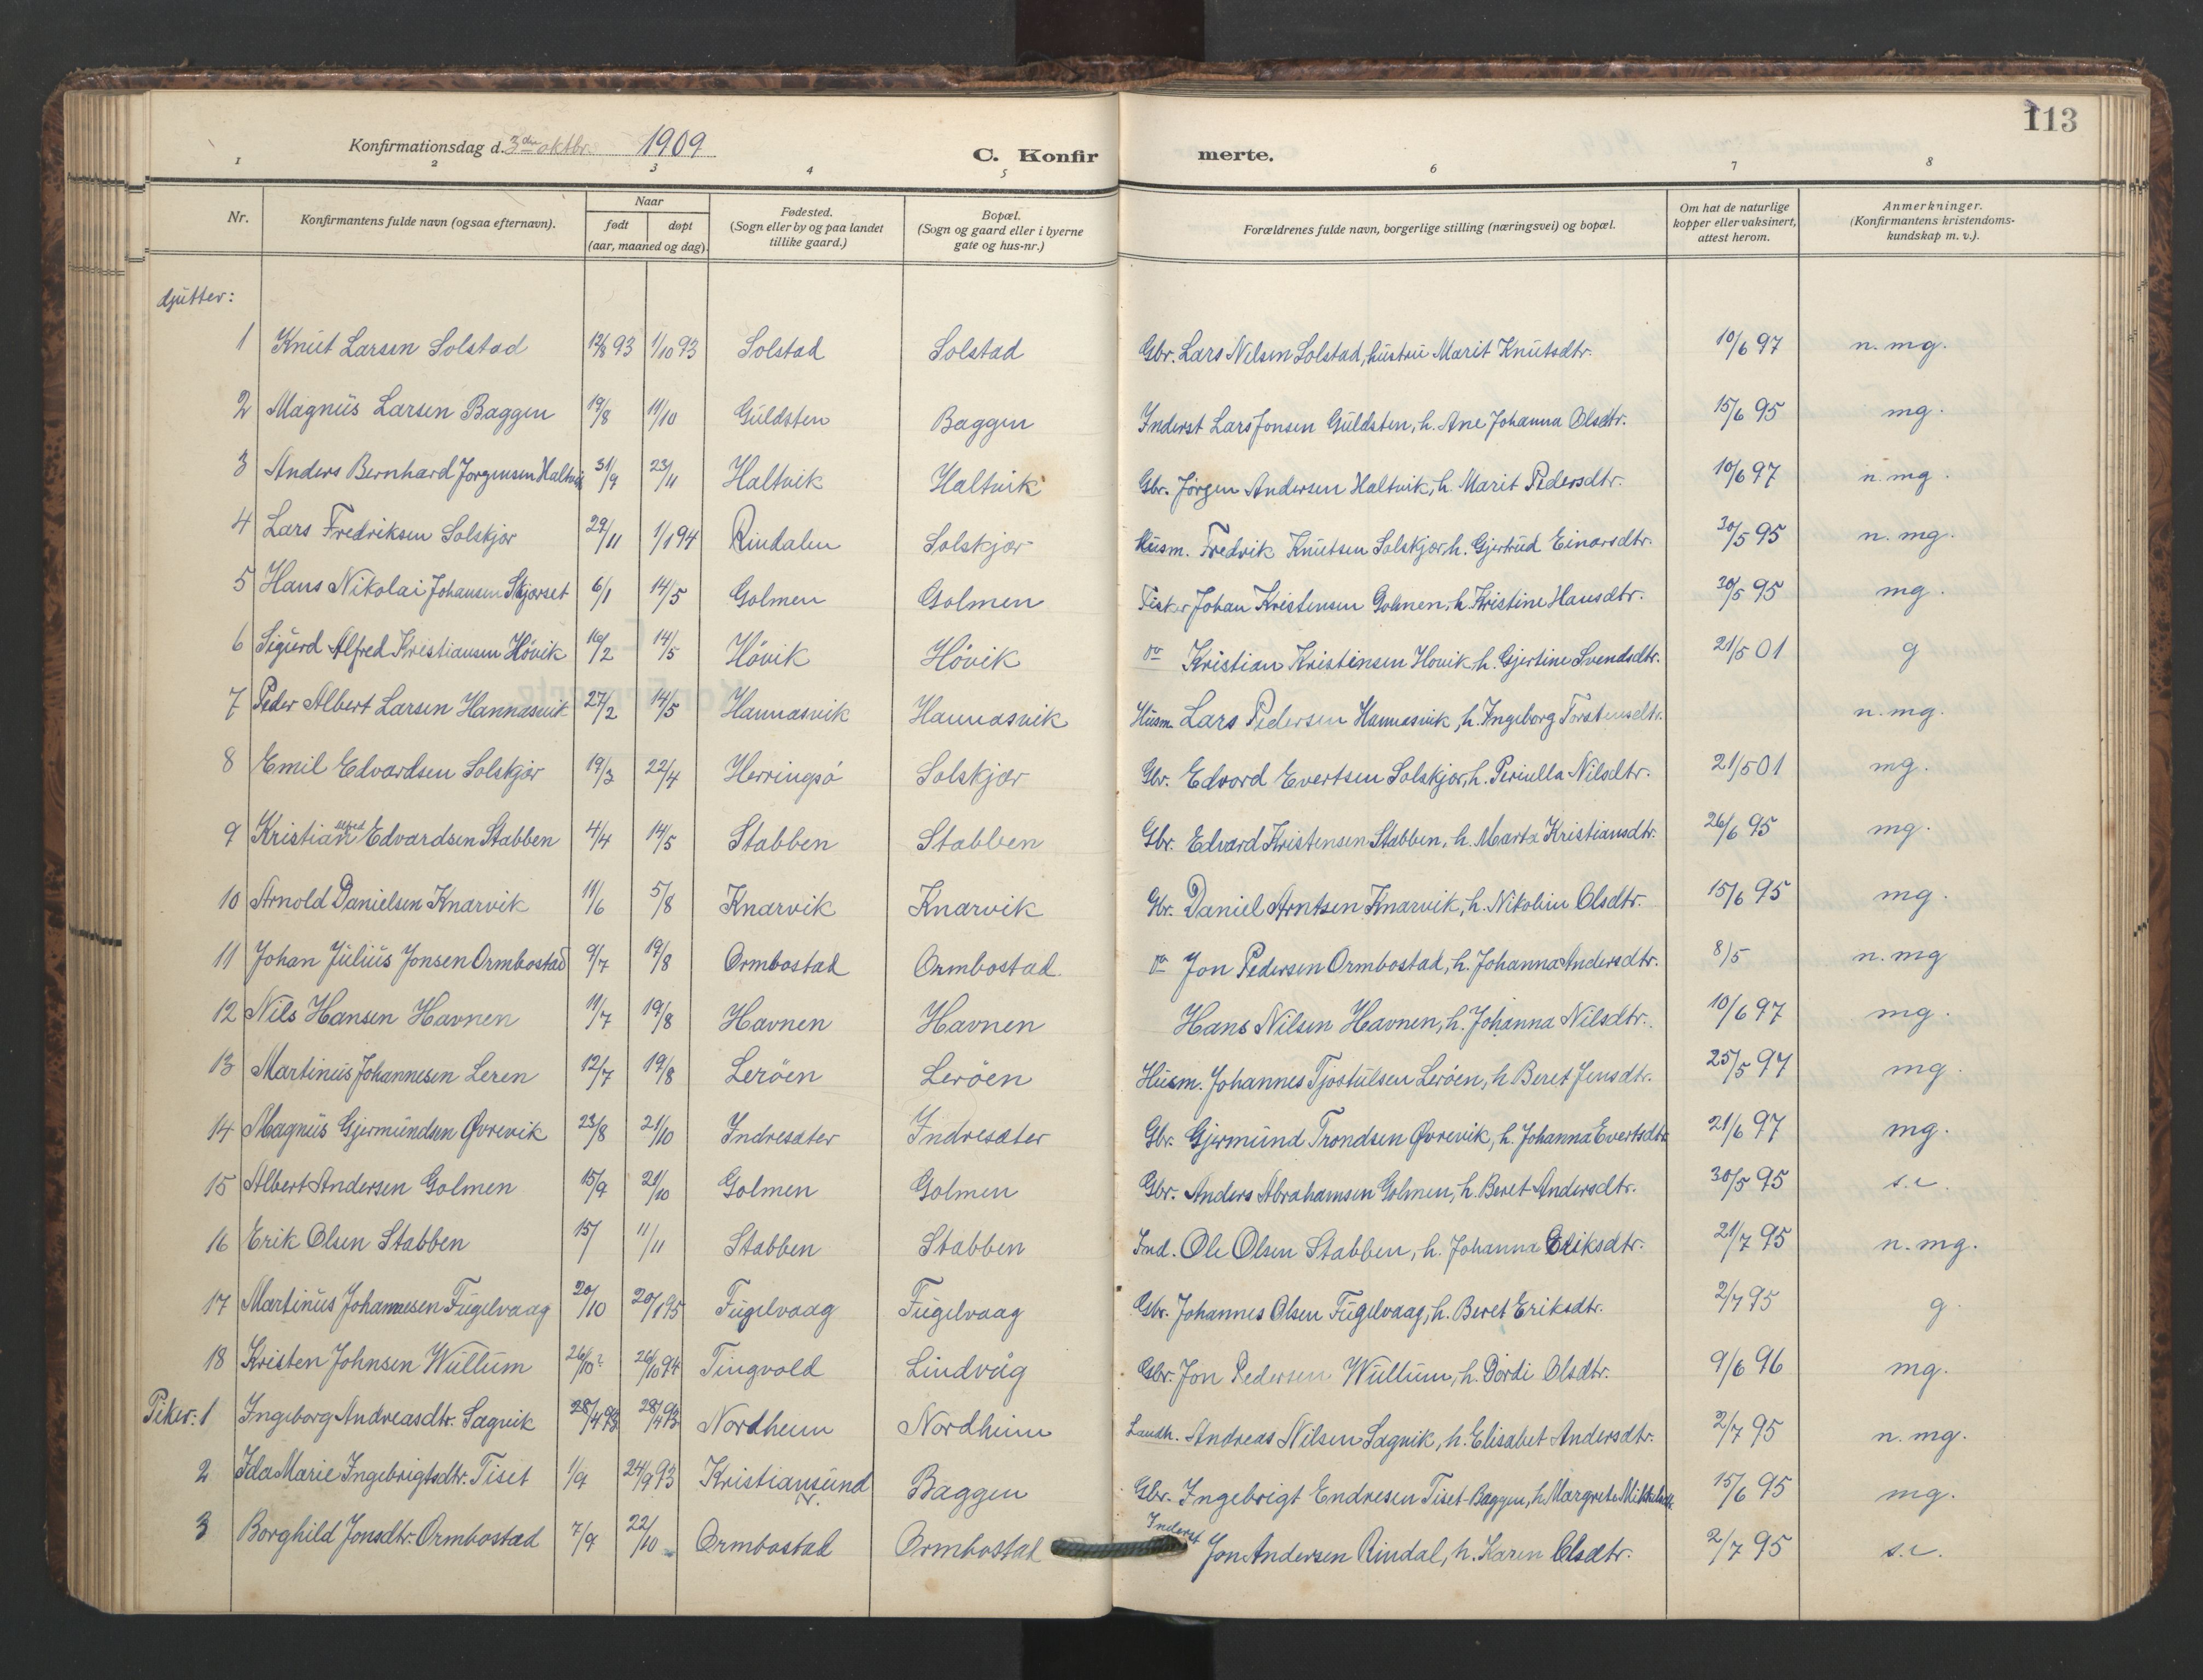 113
Konfirmationsdag d. 3die oktbr. 1909
C. Konfir merte.
1 2 3 4 5 6 7 8
Nr. Konfirmantens fulde navn (ogsaa efternavn). Naar født døpt (aar, maaned og dag). Fødested. (Sogn eller by og paa landet tillike gaard.) Bopæl. (Sogn og gaard eller i byerne gate og hus-nr.) Forældrenes fulde navn, borgerlige stilling (næringsvei) og bopæl. Om hat de naturlige kopper eller vaksinert, attest herom. Anmerkninger. (Konfirmantens kristendoms-kundskap m. v.).
Gutter:
1 Knut Larsen Solstad 12/8 93 1/10 93 Solstad Solstad Gbr. Lars Nilsen Solstad, hustru Marit Knutsdtr. 10/6 97 n. mg.
2 Magnus Larsen Baggen 19/8 11/10 Guldsten Baggen Inderst Lars Jonsen Guldsten, h. Ane Johanna Olsdtr. 15/6 95 mg.
3 Anders Bernhard Jorgensen Haltvik 31/9 23/11 Haltvik Haltvik Gbr. Jörgen Andersen Haltvik, h. Marit Pedersdtr. 10/6 97 n. mg.
4 Lars Fredriksen Solskjør 29/11 1/1 94 Rindalen Solskjør Husm. Fredrik Knutsen Solskjør h. Gjertrud Einarsdtr. 30/5 95 n. mg.
5 Hans Nikolai Johansen Skjørset 6/1 14/5 Golmen Golmen Fisker Johan Kristensen Golmen, h. Kristine Hansdtr. 30/5 95 mg.
6 Sigurd Alfred Kristiansen Hövik 16/2 14/5 Hövik Hövik do Kristian Kristensen Hovik h. Gjertine Svendsdtr. 21/5 01 g
7 Peder Albert Larsen Hannasvik 27/2 14/5 Hannasvik Hannasvik Husm. Lars Pedersen Hannasvik, h. Ingeborg Torstensdtr. n. mg.
8 Emil Edvardsen Solskjør 19/3 22/4 Herringsö Solskjær Gbr. Edvard Evertsen Solskjør, h. Pernilla Nilsdtr. 21/5 01 mg.
9 Kristian Alfred Edvardsen Stabben 4/4 14/5 Stabben Stabben Gbr. Edvard Kristensen Stabben, h. Marta Kristiansdtr. 26/6 95 mg.
10 Arnold Danielsen Knarvik 11/6 5/8 Knarvik Knarvik Gbr. Daniel Arntsen Knarvik, h. Nikolin Olsdtr. 15/6 95 mg.
11 Johan Julius Jonsen Ormbostad 9/7 19/8 Ormbostad Ormbostad. do Jon Pedersen Ormbostad, h. Johanna Andersdtr. 8/5 n. mg
12 Nils Hansen Havnen 11/7 19/8 Havnen Havnen Hans Nilsen Havnen, h. Johanna Nilsdtr. 10/6 97 mg.
13 Martinus Johannesen Leren 12/7 19/8 Leröen Leröen Husm. Johannes Tjostulsen Leröen, h Beret Jensdtr. 25/5 97 mg.
14 Magnus Gjermundsen Øvrevik 23/8 21/10 Indresæter Indresæter Gbr. Gjermund Trondsen Øvrevik, h. Johanna Evertsdtr 21/6 97 mg.
15 Albert Andersen Golmen 15/9 21/10 Golmen Golmen Gbr. Anders Abrahamsen Golmen, h. Beret Andersdtr. 30/5 95 s.c.
16 Erik Olsen Stabben 15/ 11/11 Stabben Stabben Ind. Ole Olsen Stabben, h. Johanna Eriksdtr. 21/7 95 n. mg.
17 Martinus Johannesen Fugelvaag 20/10 20/1 95 Fugelvaag Fugelvaag Gbr. Johannes Olsen Fugelvaag, h. Beret Eriksdtr. 2/7 95 g.
18 Kristen Johnsen Wullum 26/10? 26/10 94 Tingvold Lindvåg Gbr. Jon Pedersen Wullum, h. Dordi Olsdtr. 9/6 96 mg.
Piker: 1 Ingeborg Andreasdtr. Sagvik 28/4 93 28/4 93 Nordheim Nordheim Landh. Andreas Nilsen Sagvik, h. Elisabet Andersdtr. 2/7 95 n. mg.
2 Ida Marie Ingebrigtsdtr. Tiset 1/9 24/9 93 Kristiansund Baggen Gbr. Ingebrigt Endresen Tiset-Baggen, h. Margrete Mikkelsdtr. 15/6 95 mg.
3 Borghild Jonsdtr. Ormbostad 7/9 22/10 Ormbostad Ormbostad Inderst Jon Andersen Rindal, h. Karen Olsdtr. 2/7 95 s.c.